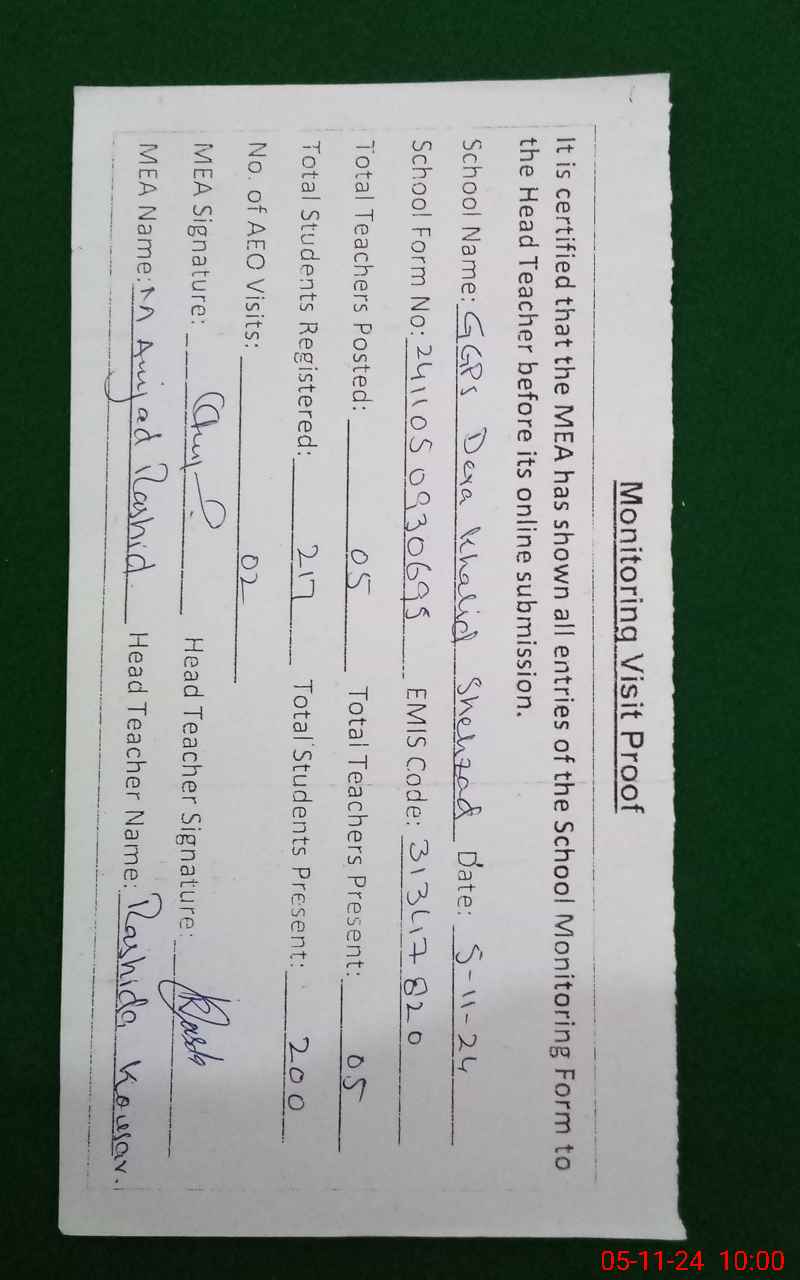 Monitoring Visit Proof
It is certified that the MEA has shown all entries of the School Monitoring Form to
the Head Teacher before its online submission.
School Name: GGPS Dera Khalid Shehzad Date: 5-11-24
School Form No: 241105093069S EMIS Code: 31347820
Total Teachers Posted: 05 Total Teachers Present: 05
Total Students Registered: 217 Total Students Present: 200
No. of AEO Visits: 02
MEA Signature: Head Teacher Signature:
MEA Name: M Amjad Rashid. Head Teacher Name: Rashida Kousar.
05-11-24 10:00